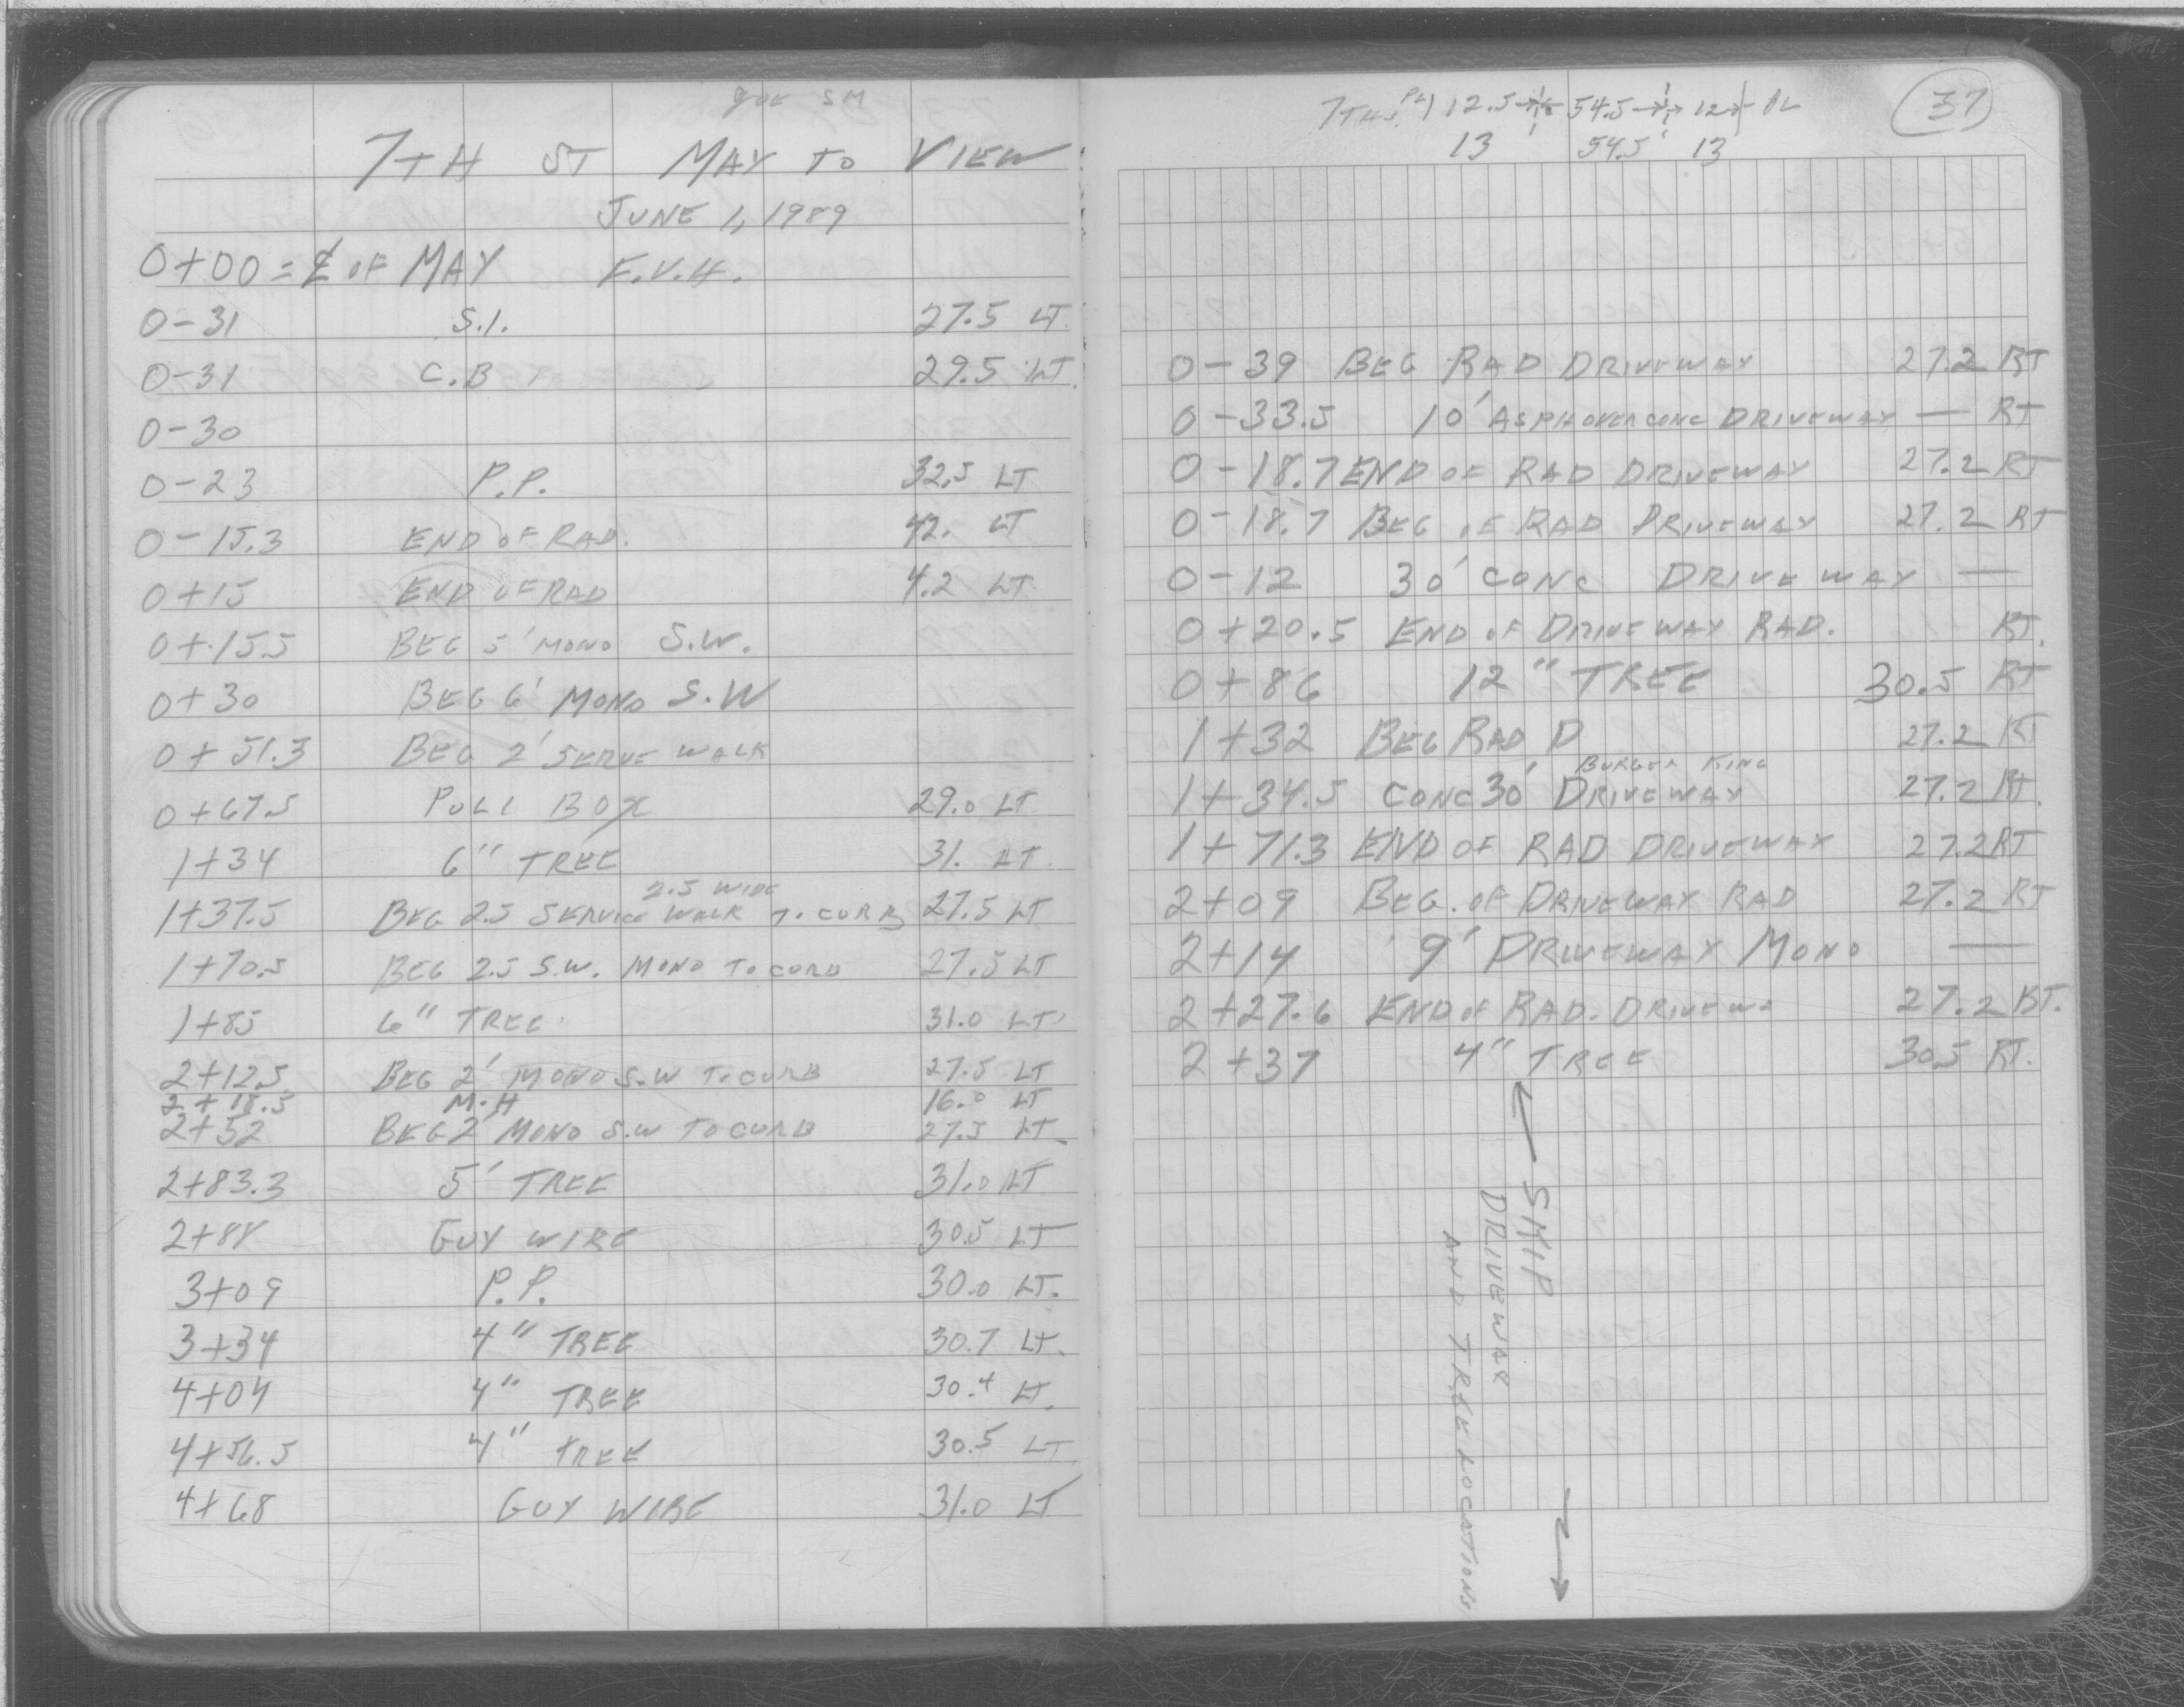 JOE SM
7TH ST MAY TO VIEW
JUNE 1, 1989
0+00 = ℄ OF MAY F.V.H.
0-31 S.I. 27.5 LT.
0-31 C.B 29.5 LT.
0-30
0-23 P.P. 32.5 LT
0-15.3 END OF RAD. 42. LT
0+15 END OF RAD 4.2 LT
0+15.5 BEG 5' MONO S.W.
0+30 BEG 6' MONO S.W
0+51.3 BEG 2' SERVE WALK
0+67.5 PULL BOX 29.0 LT
1+34 6" TREE 31. LT
2.5 WIDE
1+37.5 BEG 2.5 SERVICE WALK T. CURB 27.5 LT
1+70.5 BEG 2.5 S.W. MONO TO CURB 27.5 LT
1+85 6" TREE 31.0 LT
2+12.5 BEG 2' MONO S.W TO CURB 27.5 LT
2+18.5 M.H 16.0 LT
2+52 BEG 2' MONO S.W TO CURB 27.5 LT
2+83.3 5' TREE 31.0 LT
2+88 GUY WIRE 30.5 LT
3+09 P.P. 30.0 LT.
3+34 4" TREE 30.7 LT.
4+04 4" TREE 30.4 LT.
4+56.5 4" TREE 30.5 LT
4+68 GUY WIRE 31.0 LT
7TH ST. PL 12.5 54.5 12 PL
13 54.5' 13
37
0-39 BEG RAD DRIVEWAY 27.2 RT
0-33.5 10' ASPH OVER CONC DRIVEWAY — RT
0-18.7 END OF RAD DRIVEWAY 27.2 RT
0-18.7 BEG OF RAD DRIVEWAY 27.2 RT
0-12 30' CONC DRIVEWAY —
0+20.5 END OF DRIVEWAY RAD. RT.
0+86 12" TREE 30.5 RT
1+32 BEG RAD D 27.2 RT
BURGER KING
1+34.5 CONC 30' DRIVEWAY 27.2 RT.
1+71.3 END OF RAD DRIVEWAY 27.2 RT
2+09 BEG. OF DRIVEWAY RAD 27.2 RT
2+14 9' DRIVEWAY MONO —
2+27.6 END OF RAD. DRIVEWA 27.2 RT.
2+37 4" TREE 30.5 RT.
← SKIP →
DRIVEWAR
AND TREE LOCATIONS